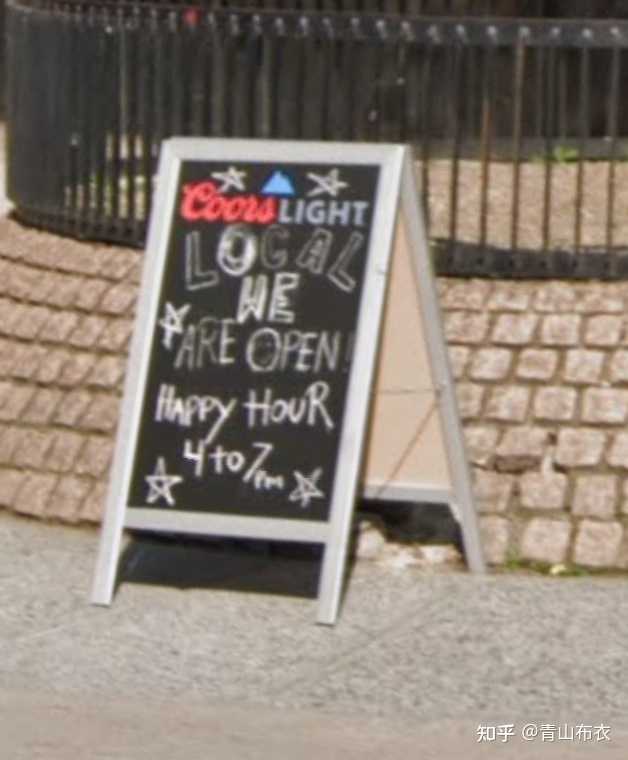 Coors LIGHT
LOCAL
WE
ARE OPEN!
HAPPY HOUR
4 to 7pm
知乎 @青山布衣